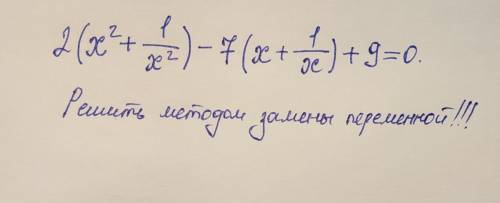 2(x² + 1/x²) - 7(x + 1/x) + 9 = 0.
Решить методом замены переменной!!!